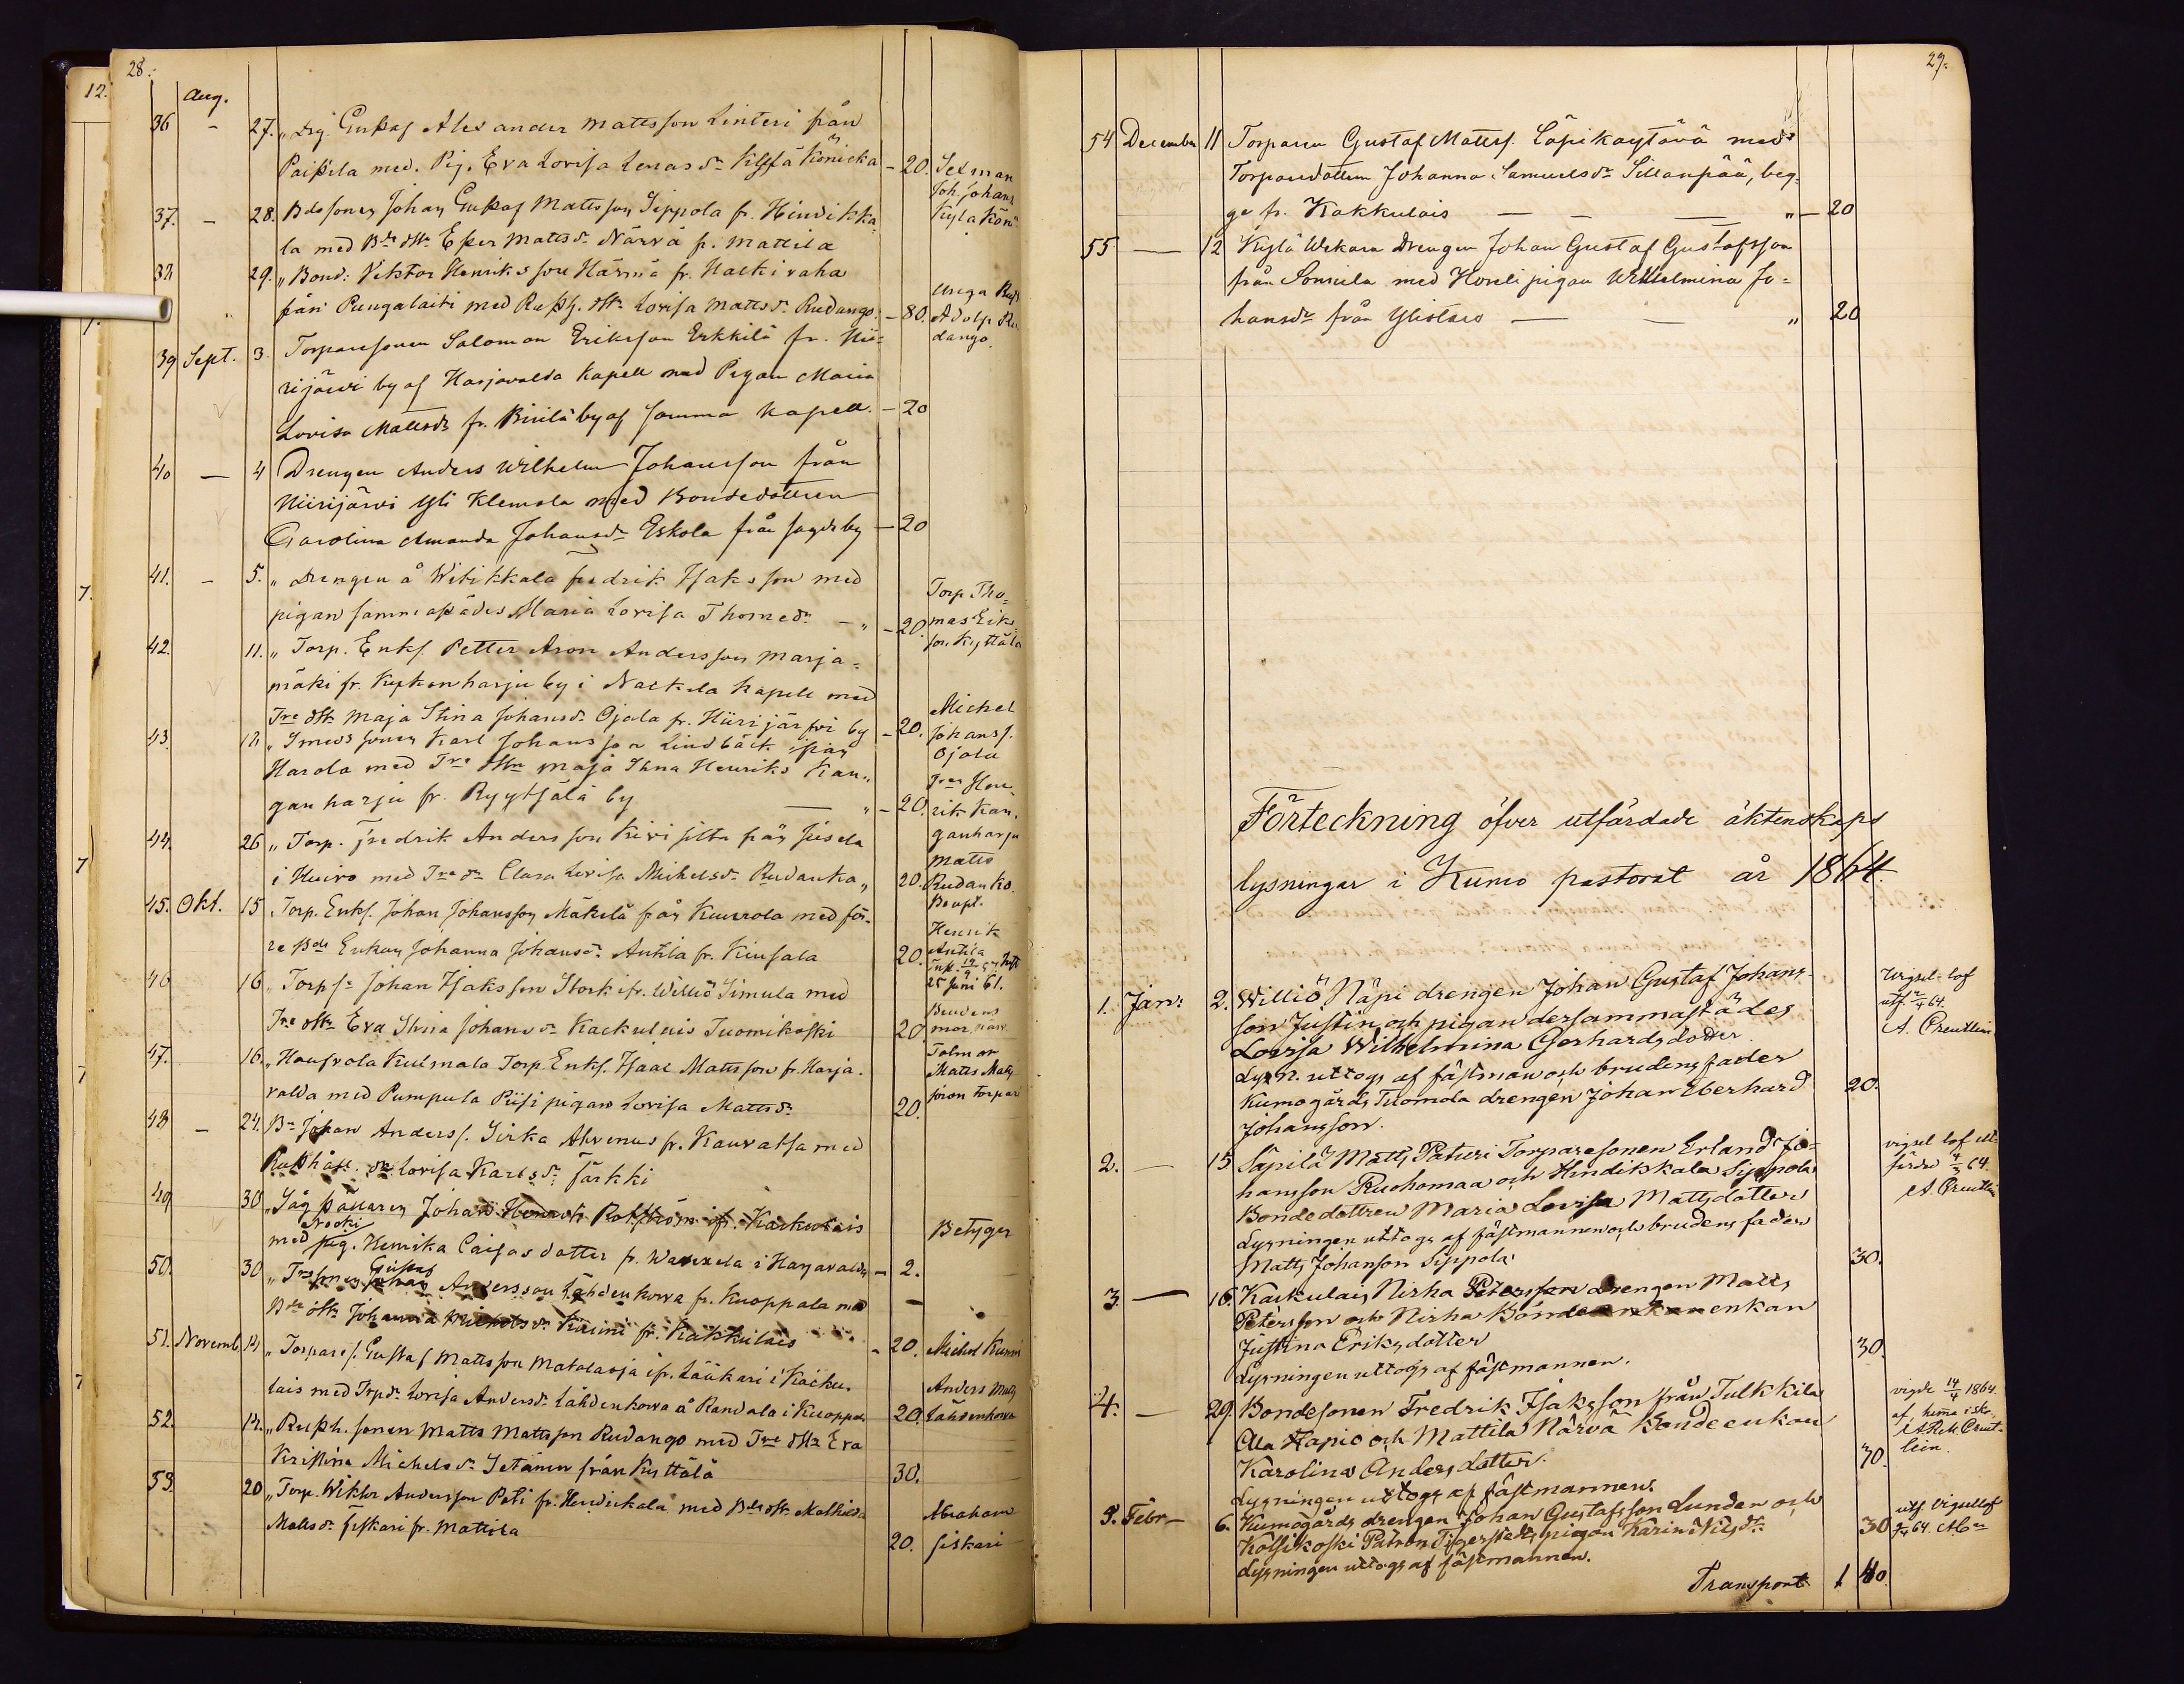 28.
12.
Aug.
36 - 27. „Drg. Gustaf Alexander Mattsson Linteri från
Paistila med. Pig. Eva Lovisa Lenasdr Kyttä Könicka - 20. Sexman
Joh. Johans
37. - 28. Bdesonen Johan Gustaf Mattsson Sippola fr. Hindikka- Kyla Köni
la med Bde dttr Ester Mattsdr Närvä fr. Mattila
38 29. „Bond: Viktor Henriksson Härmä fr. Halkivaha
från Pungalaiti med Rusth. dttr Lovisa Mattsdr Rudango. - 80. unga Rust
Adolf Ru
dango.
39 Sept. 3. Torparesonen Salomon Eriksson Erkkilä fr. Hii-
rijärvi by af Harjavalda Kapell med Pigan Maria
Lovisa Mattsdr fr. Pirilä by af samma Kapell. - 20
40 — 4 Drengen Anders Wilhelm Johansson från
Hiirijärvi Yli Klemola med Bondedottren
Carolina Amanda Johansdr Eskola från sagde by - 20
41. - 5. „Drengen å Witikkala Fredrik Isaksson med
pigan sammastädes Maria Lovisa Thomedr - „ - 20. Torp Tho-
mas Eriks
son Kyttälä
42. 11. „Torp. Enkl. Petter Aron Andersson Marja-
mäki fr. Kyrkonharju by i Nackila Kapell med
Tre dttr Maja Stina Johansdr Ojala fr. Hiirijärfvi by - 20. Michel
Johanss.
Ojala
43. 12. „Smeds sonen Karl Johansson Lindbäck ifrån
Harola med Tre dttr Maja Stina Henriks Kan-
ganharju fr. Ryytsälä by — „ - 20. Tren Hen
rik Kan-
ganharju
44. 26 „Torp. Fredrik Andersson Kivisilta från
i Huiro med Tre dr Clara Lovisa Michelsdr Rudanko „ 20. Matts
Rudanko.
45. Okt. 15 „Torp. Enkl. Johan Johansson Mäkilä från Kuurola med för-
re Bde Enkan Johanna Johansdr Anttila fr. Kiusala 20. Henrik
Anttila
25 Juni 61.
46 16 „Torp sn Johan Isaksson Storkifr. Williö Simula med
Tre dttr Eva Stina Johansdr Kackulais Tuomikoski 20. Brudens
mor
47. 16. „Haufvola Kulmala Torp. Enkl. Isaac Mattsson fr. Harja-
valda med Pumpula Piisi pigan Lovisa Mattsdr 20. Talman
Matts Matts
son torpar
48 - 24. Bn Johan Anderss. Sirka Ahvenus fr. Kauvatsa med
Rusthåll. dr Lovisa Karlsdr Särkki
49 30 „Såg ställaren Johan Henrik Roström ifr. Kackulais
Nooki
med pig. Henrika Caisas dotter fr. i Harjavalda - 2. Betyger
50. 30 „Tresonen Gustaf Johan Andersson Lähdenkorva fr. Kuoppala med
Bde dttr Johanna Michelsdr Kuuni fr. Kakkulais - 20. Michel Kuuni
51. Novemb. 14 „Torpares. Gustaf Mattsson Matolaoja ifr. Lääkäri i Kacku-
lais med Trpdr Lovisa Andersdr Lähdenkorva å Randala i Kuoppala 20. Anders Matts
Lähdenkorva
52. 14. „Rusth. sonen Matts Mattsson Rudango med Tre dttr Eva
Kristina Michelsdr Setänen från Kyttälä 30.
53. 20 „Torp. Wiktor Andersson Poti fr. Hindickala med Bde dttr Mathilda
Mattsdr Siskari fr. Mattila 20. Abraham
Siskari
29.
54 December 11 Torparen Gustaf Matts. Läpikäytävä med
Torparedottern Johanna Samuelsdr Sillanpää, beg-
ge fr. Kakkulais — — — „ — 20
55 — 12 Kylä Wekara Drengen Johan Gustaf Gustafsson
från Sonnila med Hoveli pigan Wilhelmina Jo-
hansdr från Ylistaro — — „ 20
Förteckning öfver utfärdade äktenskaps
lysningar i Kumo pastorat år 1864.
1. Jan: 2. Williö Näpi drengen Johan Gustaf Johans-
son Justin och pigan dersammastädes
Lovisa Wilhelmina Gerhardsdotter.
Lysn. uttogs af fästman och brudens fader
Kumogårds Tuomola drengen Johan Eberhard 20.
Johansson.
Wigsel-lof
utf. 64.
A. Creutlein
2. — 15 Säpilä Matts Paturi Torparesonen Erland Jo-
hansson Ruohomaa och Hindikkala Sippola
Bondedottren Maria Lovisa Mattsdotter
Lysningen uttogs af fästmannen och brudens fader
Matts Johanson Sippola. 30.
vigsel lof ut-
färdr 4/3 64.
A. Creutlein
3. — 16. Karkulais Nirha Petersson drengen Matts
Petersson och Nirha Bonde enkan
Justina Eriksdotter 30.
Lysningen uttogs af fästmannen.
4. — 29. Bondesonen Fredrik Isaksson från Tulkkila
Ala Hapio och Mattila Närvä Bondeenkan
Karolina Andersdotter. 30.
Lysningen uttogs af fästmannen.
vigde 14/4 1864.
af hemma i sko.
Creut-
lein.
5. Febr— 6. Kumogårds drengen Johan Gustafsson Lunden och
Kolsikoski Patron Tigerstedts pigan Karin Nilsdr 30
Lysningen uttogs af fästmannen.
utf. Vigsellof
64.
Transport 1 40.